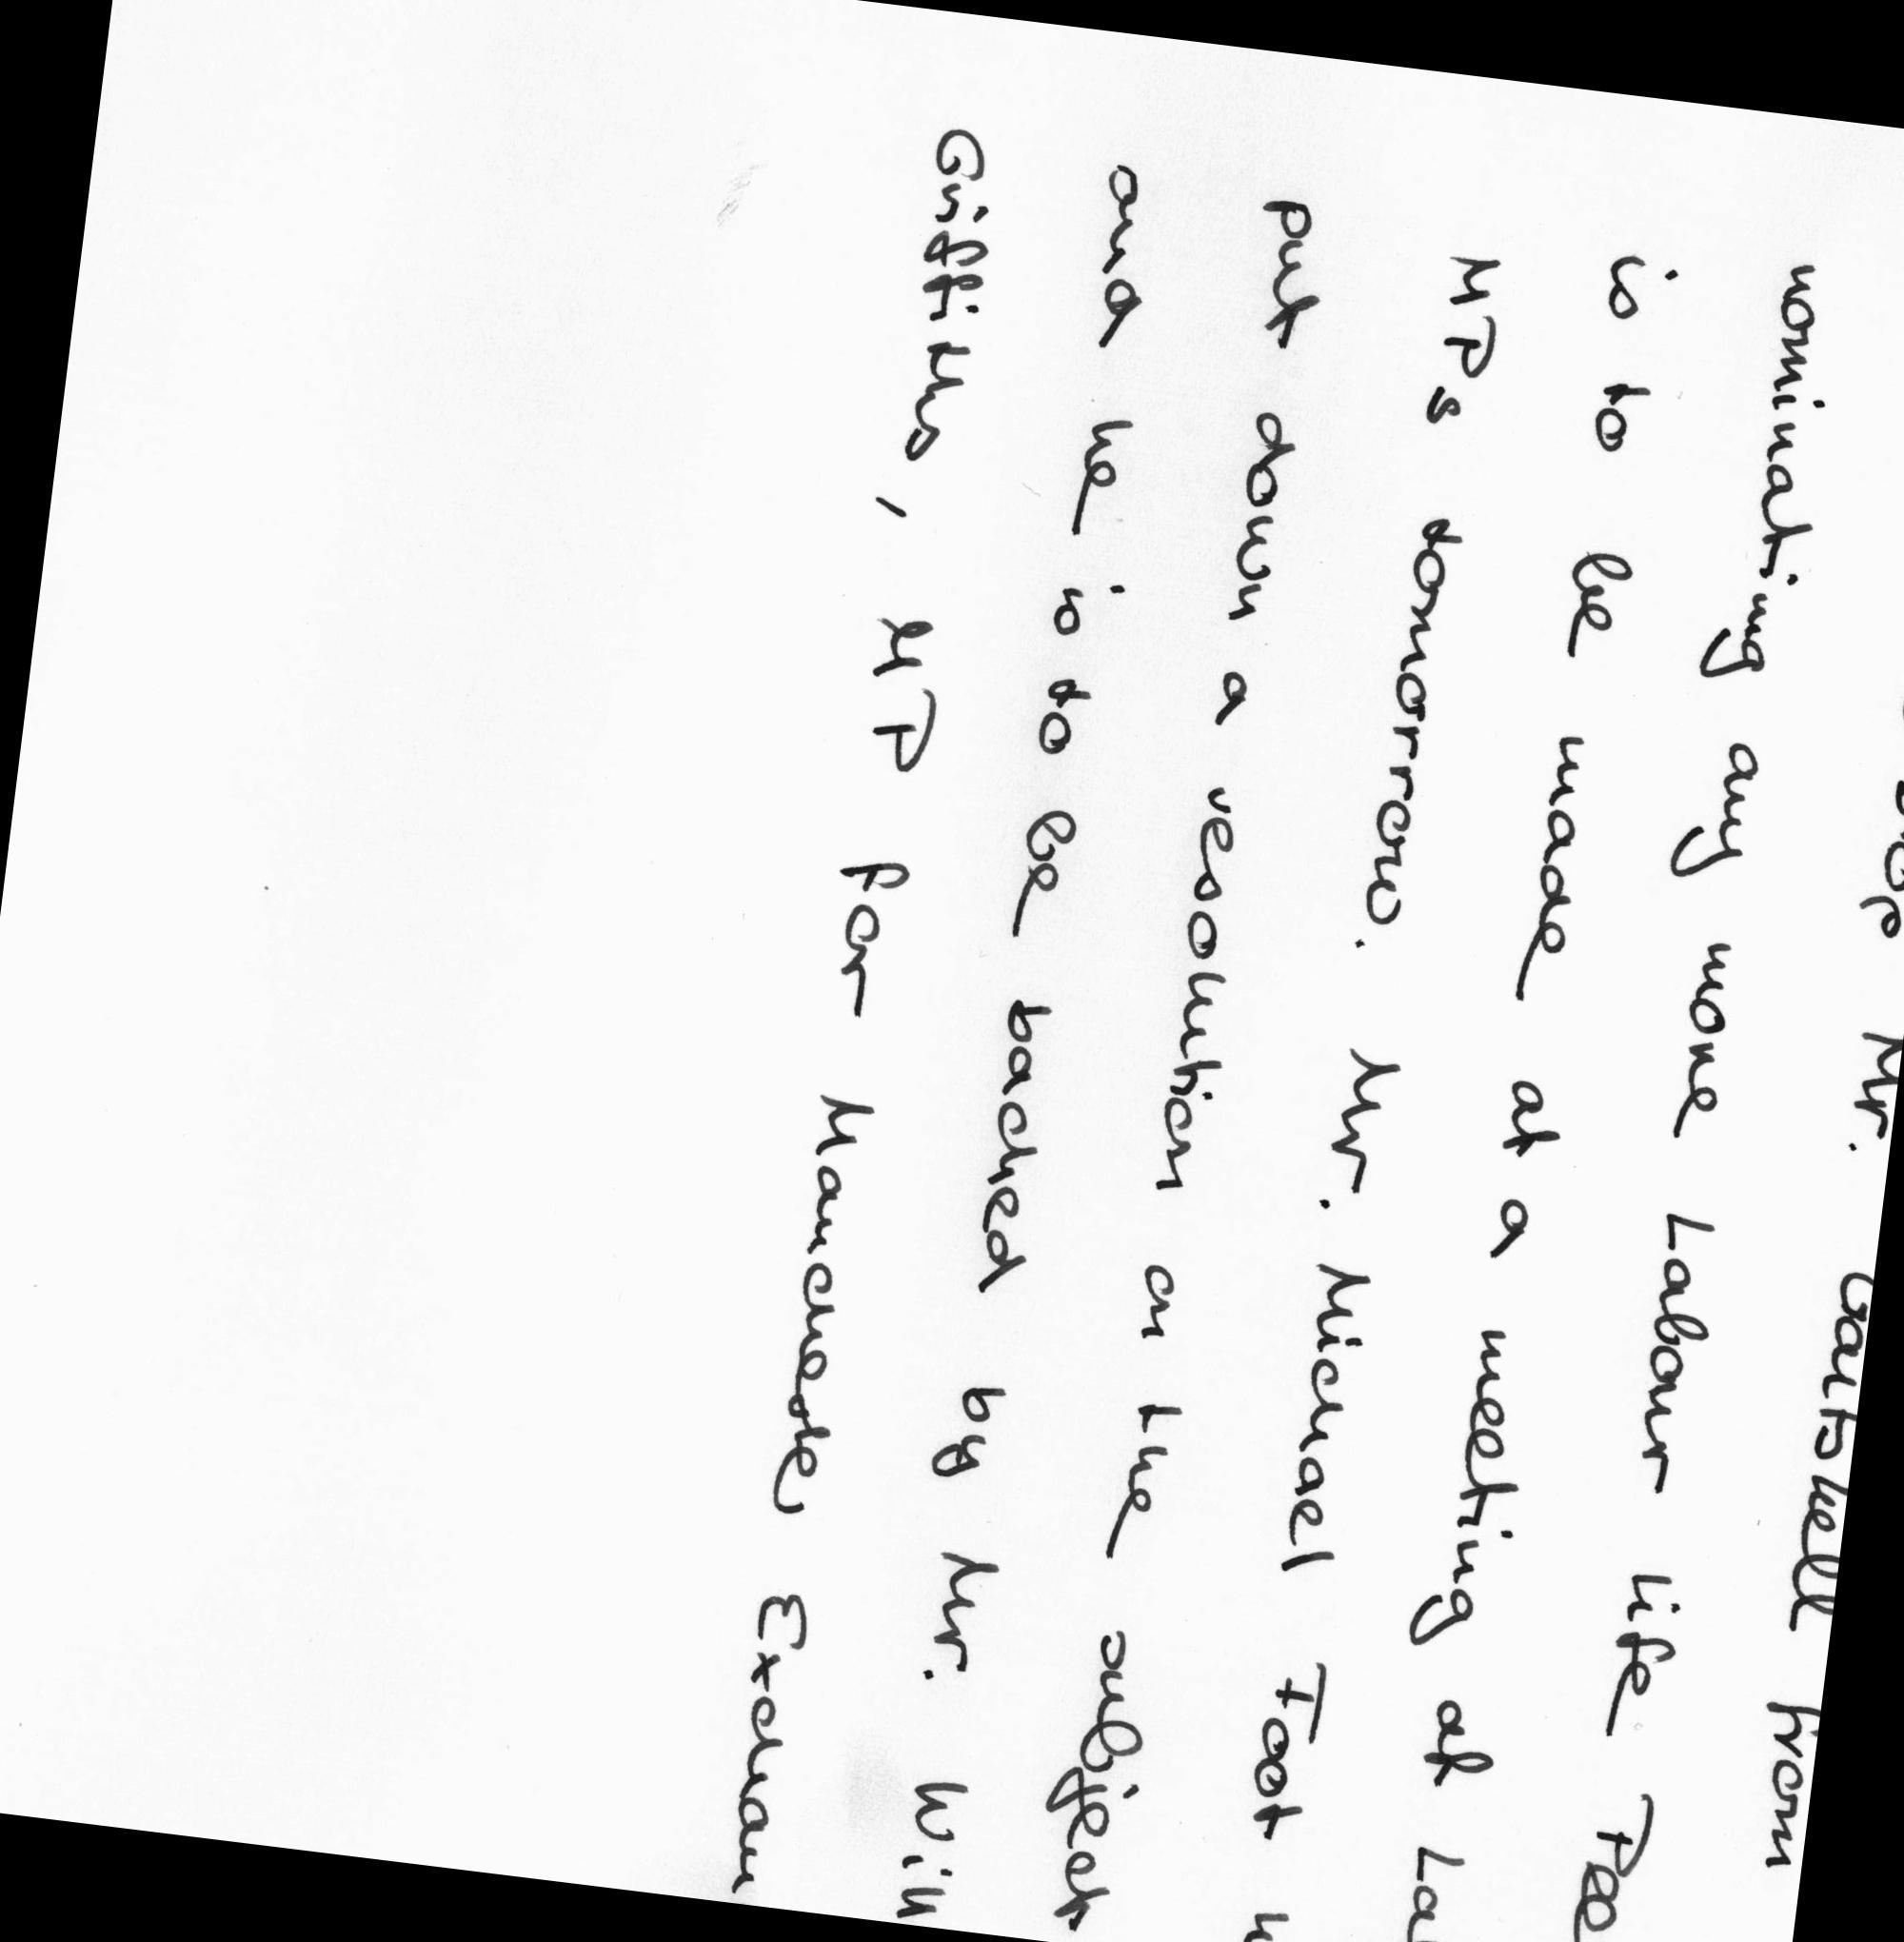 Mr. Gaitskell from
nominating any more Labour Life
is to be made at a meeting at
MPs tomorrow. Mr. Michael Foot
put down a resolution on the subject
and he is to be backed by Mr. Will
Griffiths, MP for Manchester